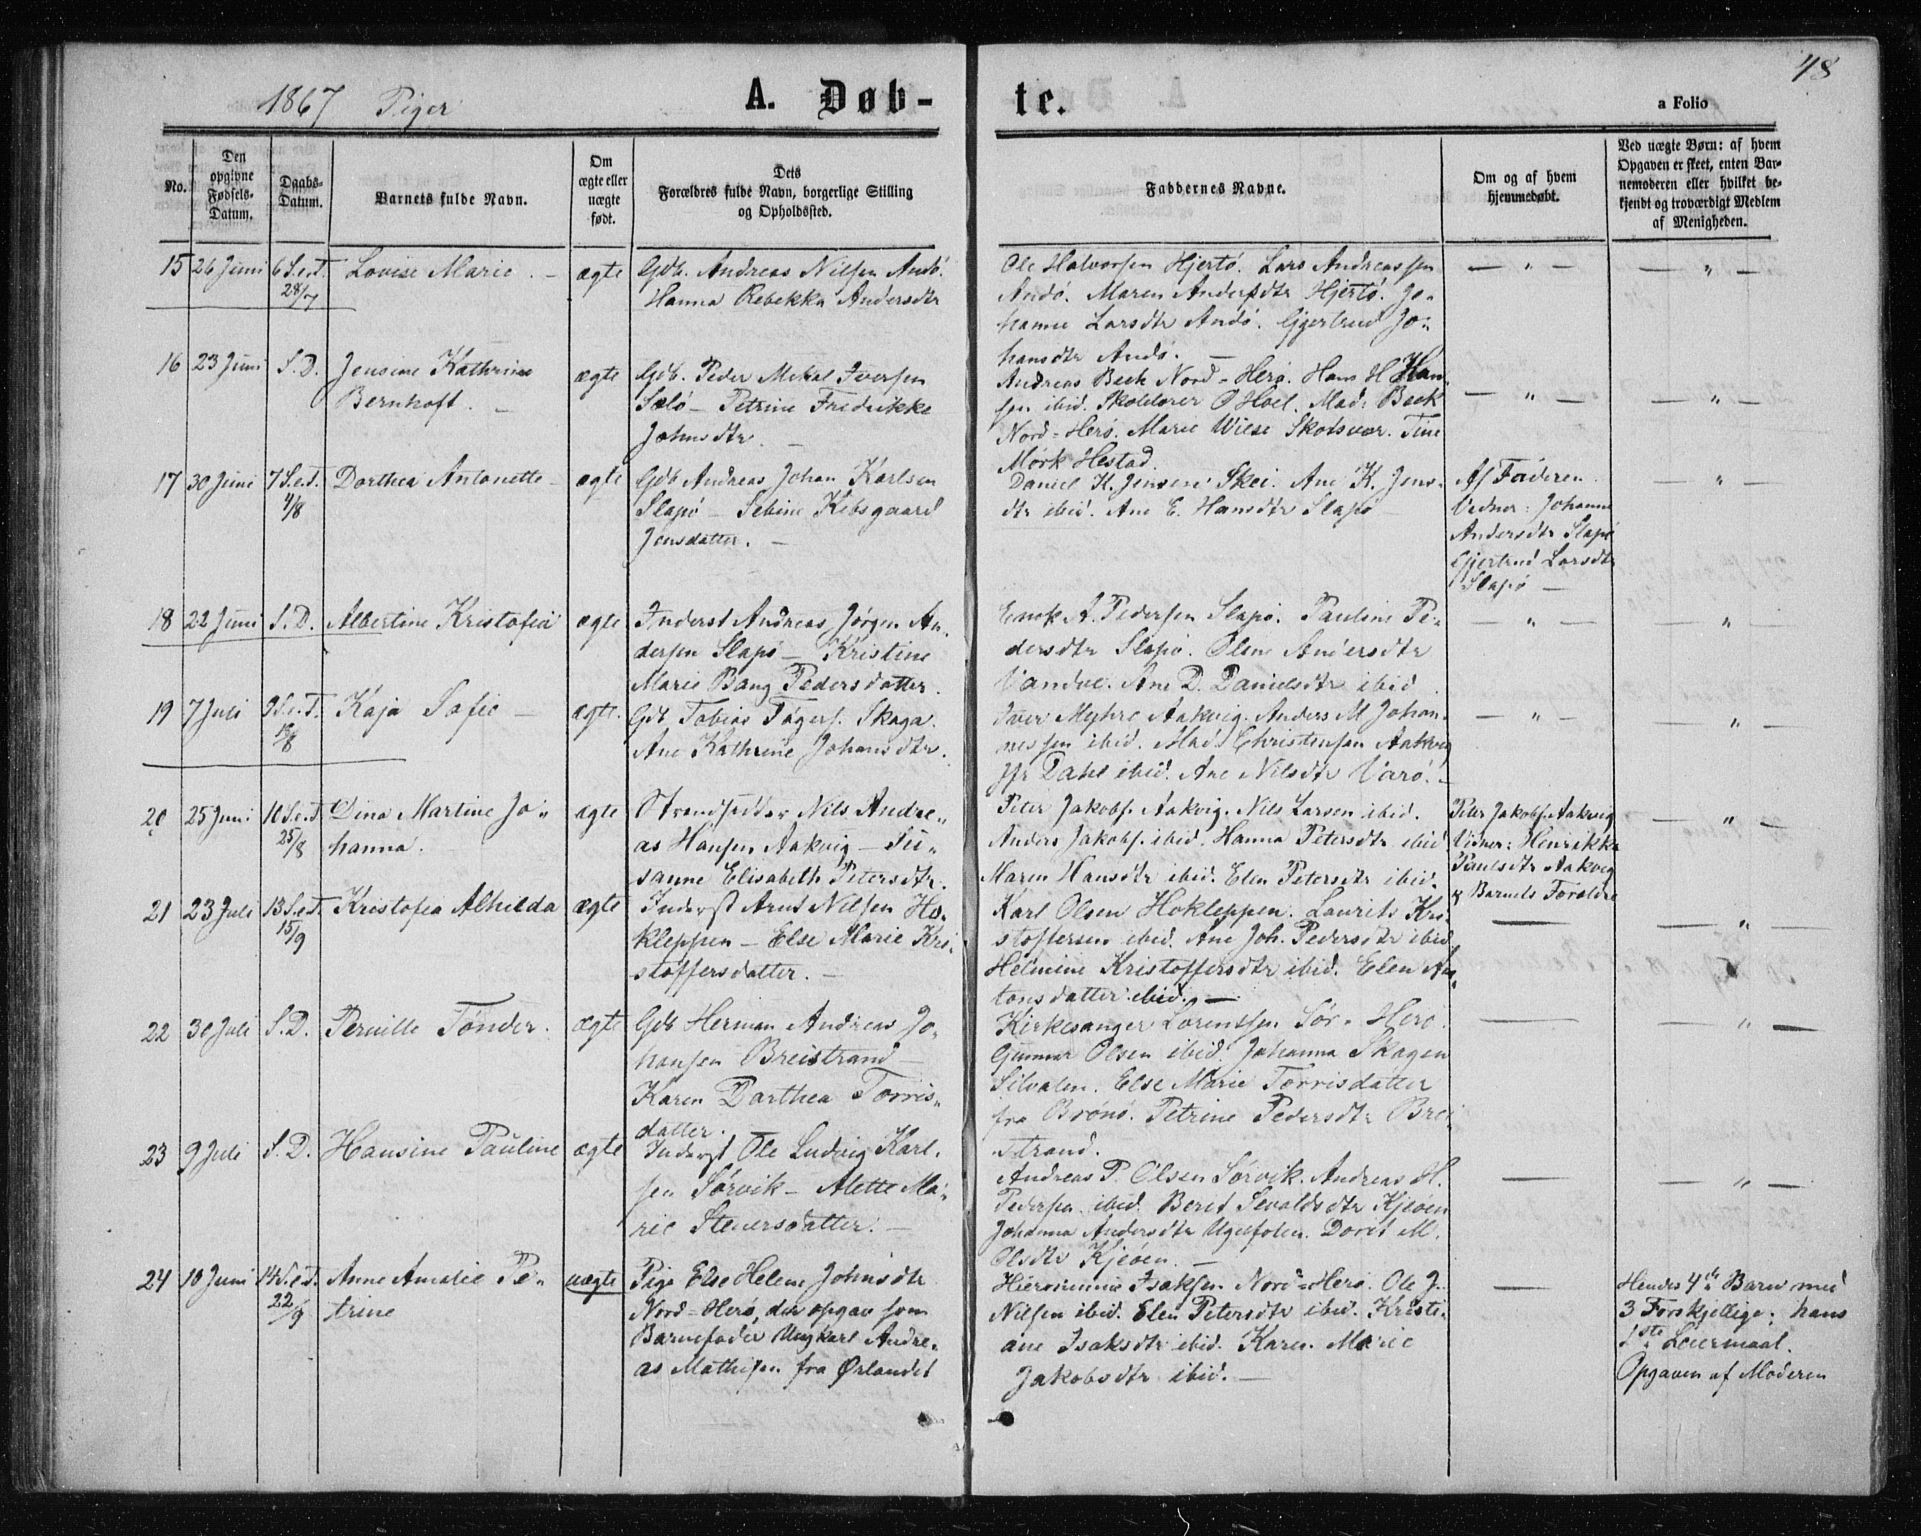 48
1867 Piger
A. Døb-
te.
a Folio
No.
Den
opgivne
Fødsels-
Datum.
Daabs-
Datum.
Barnets fulde Navn.
Om
ægte eller
uægte
født.
Dets
Forældres fulde Navn, borgerlige Stilling
og Opholdssted.
Faddernes Navne.
Om og af hvem
hjemmedøbt.
Ved uægte Børn: af hvem
Opgaven er skeet, enten Bar-
nemoderen eller hvilket be-
kjendt og troværdigt Medlem
af Menigheden.
15 26 Juni 6 S.e.T. 28/7 Lovise Marie. — ægte
Gdb. Andreas Nilsen Andö.
Hanna Rebekka Andersdtr
Ole Halvorsen Hjertö. Lars Andreassen
Andö. Maren Andersdtr Hjertö. Jo-
hanne Larsdtr Andö. Gjertrud Jo-
hansdtr Andö. —
— " —
— " —
16 23 Juni S.D. Jensine Kathrine
Bernhoft. —
ægte
Gdb. Peder Mikal Iversen
Sælö — Petrine Fredrikke
Johnsdtr. —
Andreas Beck Nord-Herö. Hans H Han-
sen ibid. Skolelærer O Hoel. Mad: Beck
Nord-Herö. Marie Wiese Skotsvær. Tine
Mörk Hestad.
— " —
— " —
17 30 Juni 7 S.e.T. 4/8 Dorthea Antonette — ægte
Gdb Andreas Johan Karlsen
Slapö — Sebine Kibsgaard
Jensdatter. —
Daniel K. Jensen Skei. Ane K. Jens-
dtr ibid. Ane E. Hansdtr Slapö —
Af Faderen.
Vidner: Johanna
Andersdtr Slapö
Gjertrud Larsdtr
Slapö —
— " —
18 22 Juni S.D. Albertine Kristofia ægte
Inderst Andreas Jörgen An-
dersen Slapö — Kristine
Marie Bang Pedersdatter.
Enok A. Pedersen Slapö. Pauline Pe-
dersdtr Slapö. Oline Andersdtr
Vandve. Ane D. Danielsdtr ibid.
— " —
— " —
19 7 Juli 9 S.e.T. 18/8 Kaja Sofie — ægte.
Gdb Tobias Tögers. Skaga.
Ane Kathrine Johansdtr.
Iver Myhre Aakvig. Anders M Johan-
nessen ibid. Mad: Christensen Aakvig
Jfr Dahl ibid. Ane Nilsdtr Varö. —
— " —
— " —
20 25 Juni 10 S.e.T. 25/8 Dina Martine Jo-
hanna.
ægte
Strandsidder Nils Andre-
as Hansen Aakvig — Su-
sanne Elisabeth Petersdtr.
Peter Jakobs. Aakvig. Nils Larsen ibid.
Anders Jakobs. ibid. Hanna Petersdtr ibid
Maren Hansdtr ibid. Elen Petersdtr ibid.
Peter Jakobs. Aakvig
Vidner: Henrikke
Paulsdtr Aakvig
& Barnets Foreldre
— " —
21 23 Juli 13 S.e.T. 15/9 Kristofia Alhilda ægte
Inderst Arnt Nilsen Ho-
kleppen — Else Marie Kri-
stoffersdatter. —
Karl Olsen Hokleppen. Laurits Kri-
stoffersen ibid. Ane Joh. Pedersdtr ibid
Helmine Kristoffersdtr ibid. Elen An-
tonsdatter ibid. —
—
— " —
22 30 Juli S.D. Pernille Tönder. ægte
Gdb Herman Andreas Jo-
hansen Breistrand —
Karen Dorthea Torris-
datter.
Kirkesanger Lorentzen Sör-Herö.
Gunnar Olsen ibid. Johanna Skagen
Silvalen. Else Marie Torrisdatter
fra Brönö. Petrine Pedersdtr Brei-
strand.
—
— " —
23 9 Juli S.D. Hansine Pauline ægte
Inderst Ole Ludvig Karl-
sen Sörvik — Alette Ma-
rie Steiersdatter. —
Andreas P. Olsen Sörvik. Andreas H.
Pedersen ibid. Berit Sevaldsdtr Kjeöen
Johanna Andersdtr Ugelfolen. Dorit M.
Olsdtr Kjeöen. —
—
— " —
24 10 Juni 14 S.e.T. 22/9 Anne Amalie Pe-
trine
uægte
Pige Else Helene Johnsdtr
Nord-Herö, der opgav som
Barnefader Ungkarl Andre-
as Mathisen fra Ørlandet
Hieronimus Isaksen Nord-Herö. Ole J.
Nilsen ibid. Elen Petersdtr ibid. Kristi-
ane Isaksdtr ibid. Karen Marie
Jakobsdtr ibid. —
—
Hendes 4de Barn med
3 Forskjellige; hans
1ste Leiermaal.
Opgaven af Moderen